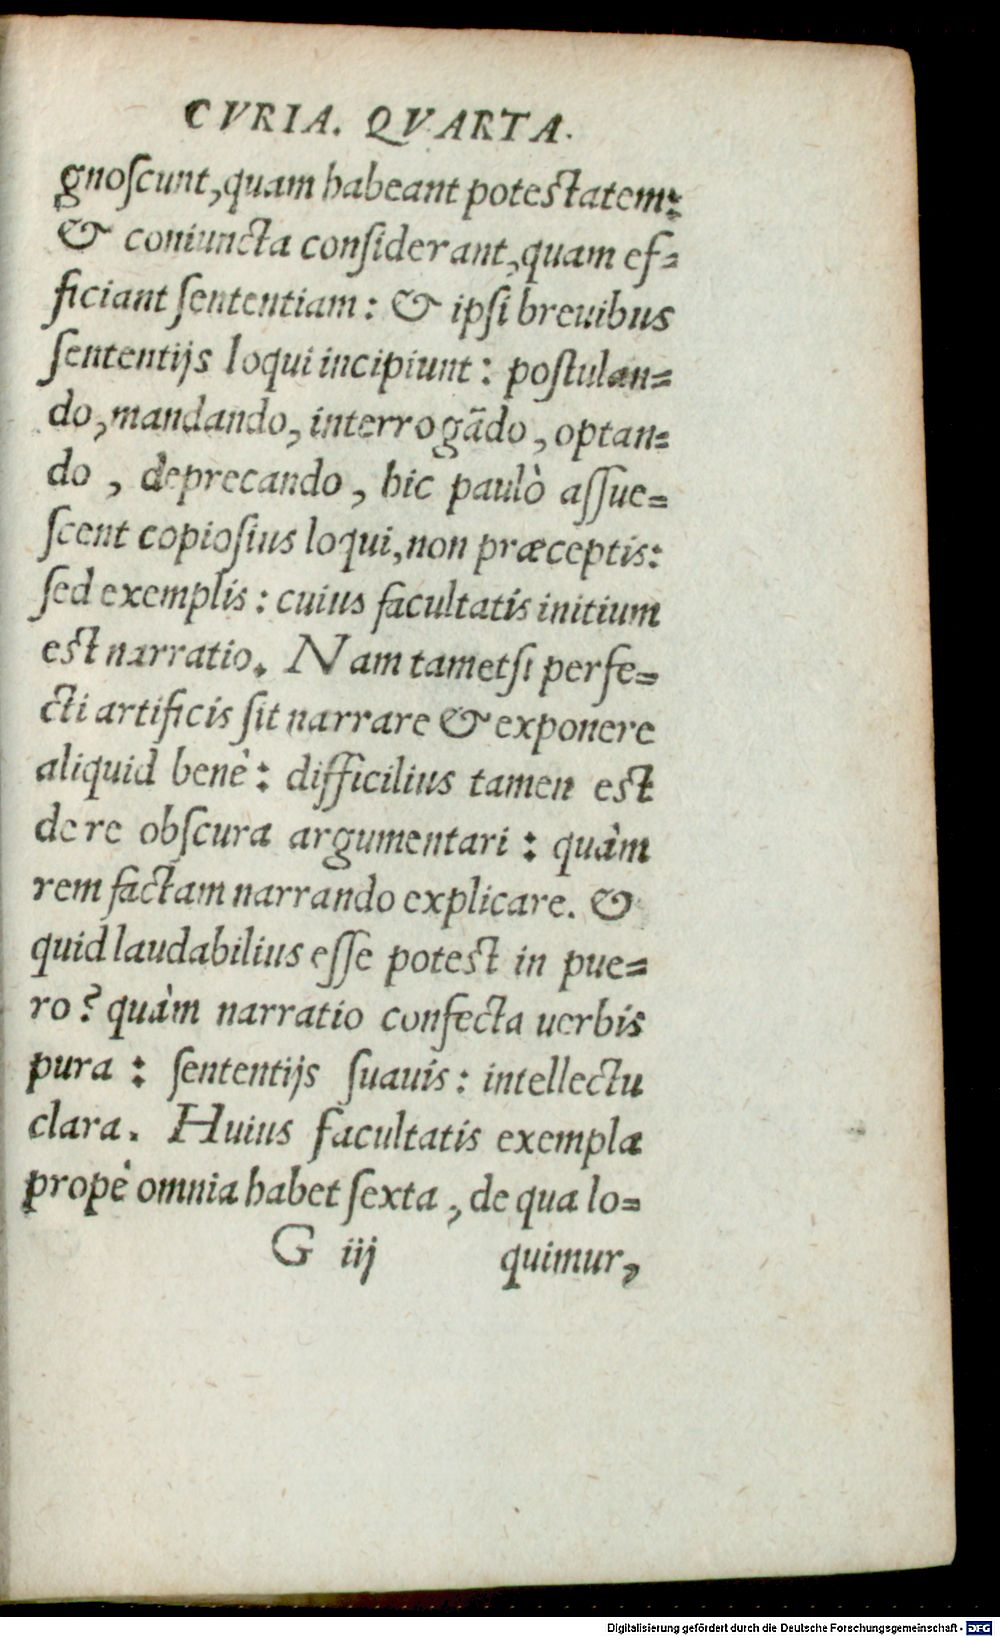 CVRIA. QVARTA.
gnoſcunt, quam habeant potestatem:
& coniuncta conſiderant, quam ef-
ficiant ſententiam: & ipſi breuibus
ſententijs loqui incipiunt: poſtulan-
do, mandando, interrogādo, optan-
do, deprecando, hic paulò aſſue-
ſcent copioſius loqui, non præceptis:
ſed exemplis: cuius facultatis initium
est narratio. Nam tametſi perfe-
cti artificis ſit narrare & exponere
aliquid benè: difficilius tamen est
de re obſcura argumentari: quàm
rem factam narrando explicare. &
quid laudabilius eſſe potest in pue-
ro? quàm narratio confecta uerbis
pura: ſententijs ſuauis: intellectu
clara. Huius facultatis exempla
propè omnia habet ſexta, de qua lo-
G iij quimur,
Digitalisierung gefördert durch die Deutsche Forschungsgemeinschaft - DFG